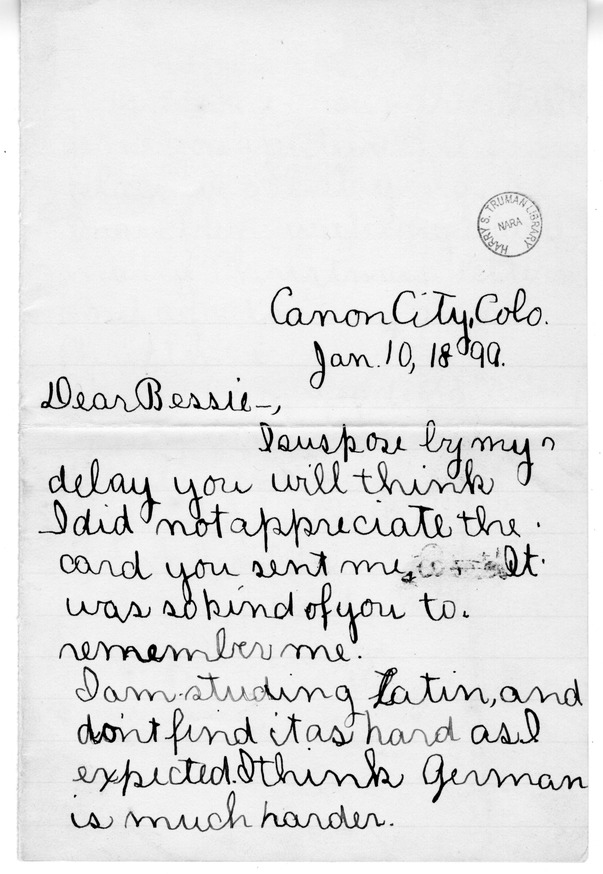 HARRY S. TRUMAN LIBRARY
NARA
Canon City, Colo.
Jan. 10, 1899.
Dear Bessie-,
I suspose by my
delay you will think
I did not appreciate the
card you sent me, It
was so kind of you to.
remember me.
I am studing Latin, and
don't find it as hard as I
expected. I think German
is much harder.